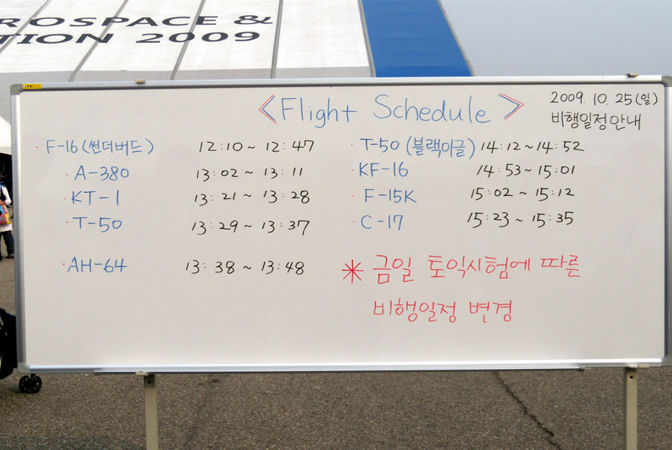 ROSPACE &
TION 2009
<Flight Schedule>
2009. 10. 25(일)
비행일정안내
· F-16 (썬더버드) 12:10 ~ 12:47
· A-380 13:02 ~ 13:11
· KT-1 13:21 ~ 13:28
· T-50 13:29 ~ 13:37
· AH-64 13:38 ~ 13:48
· T-50 (블랙이글) 14:12 ~ 14:52
· KF-16 14:53 ~ 15:01
· F-15K 15:02 ~ 15:12
· C-17 15:23 ~ 15:35
* 금일 토익시험에 따른
비행일정 변경